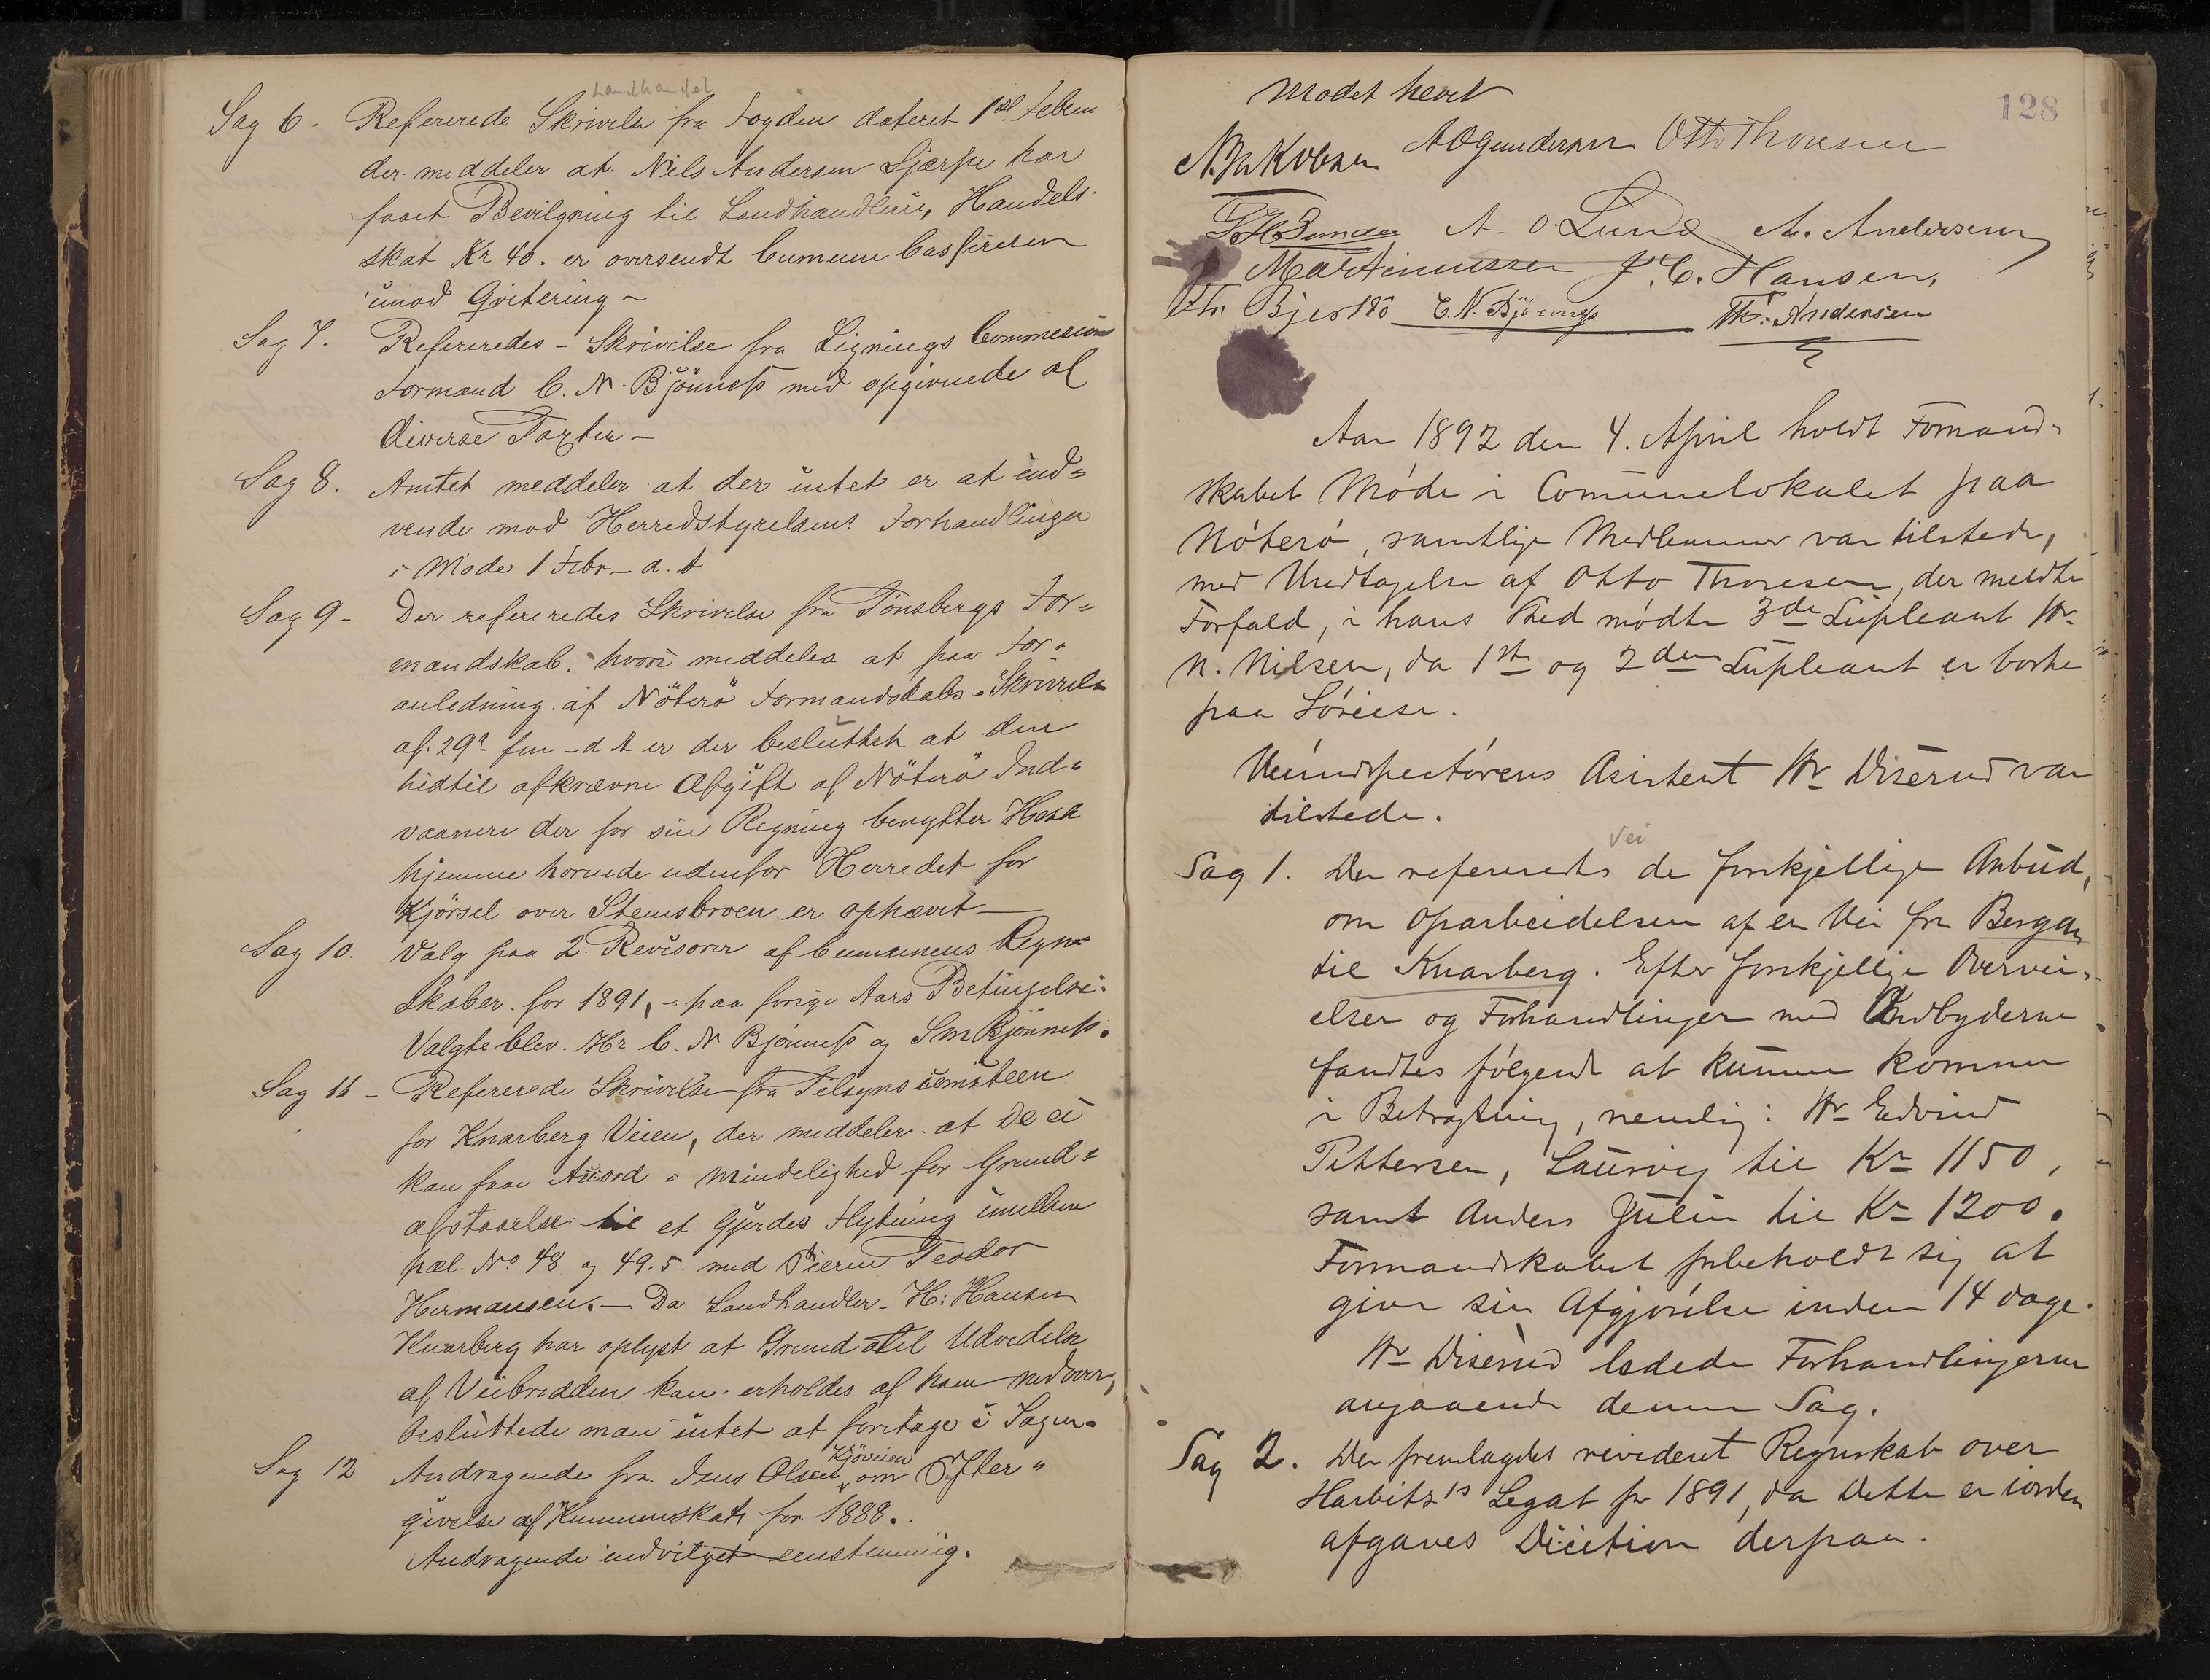 Landhandel
Sag 6. Refererede Skrivelse fra Fogden dateret 1ste Februar
der meddeler at Nils Andersen Sjærpe har
faaet Bevilgning til Landhandleri, Handels-
skat Kr 40. er oversendt Cumune Casfireren
imod Qvitering –
Sag 7. Refereredes – Skrivilse fra Lignings Commesions
Formand C. N. Bjönness med opgivende af
diverse Taxter –
Sag 8. Amtet meddeler at der intet er at ind=
vende mod Herredstyrelsens Forhandlinger
i Møde 1 Febr – d. A
Sag 9 – Der refereredes Skrivelse fra Tönsbergs For=
mandskab. hvori meddeles at paa For=
anledning af Nöterö Formandskabs Skrivelse
af 29d – d A er der besluttet at den
hidtil afkrævne Afgift af Nöterö Ind=
vaanere der for sin Regning benytter Heste
hjemme hørende udenfor Herredet for
Kjörsel over Stensbroen er ophævet —
Sag 10. Valg paa 2 Revisorer af Cumunens Regn=
skaber for 1891, – paa forrige Aars Betingelse:
Valgte blev. Hr C. N Bjönness og S M Bjönness.
Sag 11 – Refererede Skrivelse fra Tilsyns comiteen
for Knarberg Veien, der meddeler at De ei
kan faae Accord i Mindelighed for Grund=
afstaaelse til et Gjerdes Flytning imellem
pæl. No 48 og 49.5. med Eieren Teodor
Hermansen. — Da Landhandler H: Hansen
Knarberg har oplyst at Grund til Udvidelse
af Veibredden kan erholdes af ham nedover,
besluttede man intet at foretage i Sagen.
Kjöveien
Sag 12 Andragende fra Jens Olsen, om Efter=
givelse af Kummunskat for 1888.
Andragende indvilget enstemmig.
128
Mødet hevet
N. Jakobsen A O Gundersen Otto Thoresen
A. O. Lund A. Andersen
Martinussen J. C. Hansen,
Chr. Bjerkø C. N. Bjönness Th. Andersen
Aar 1892 den 4. April holdt Formand=
skabet Møde i Comunelokalet paa
Nøterø, samtlige Medlemmer var tilstede,
med Undtagelse af Otto Thoresen, der meldte
Forfald, i hans Sted mødte 3de Supleant Hr.
N. Nilsen, da 1ste og 2den Supleant er borte
paa Søreise.
Veiinspectørens Asistent Hr Diserud var
tilstede.
Vei
Sag 1. Der refereredes de forskjellige Anbud,
om Oparbeidelsen af en Vei fra Bergan
til Knarberg. Efter forskjellige Overvei=
elser og Forhandlinger med Andbyderne
fandtes følgende at kunne komme
i Betragtning, nemlig: Hr Edvind
Pettersen, Laurvig til Kr 1150,
samt Anders Julin til Kr 1200.
Formandskabet forbeholdt sig at
give sin Afgjørelse inden 14 dage.
Hr Diserud ledede Forhandlingerne
angaaende denne Sag.
Sag 2. Der fremlagdes revideret Regnskab over
Harbitz's Legat for 1891, da Dette er iorden
afgaves Dicition derpaa.